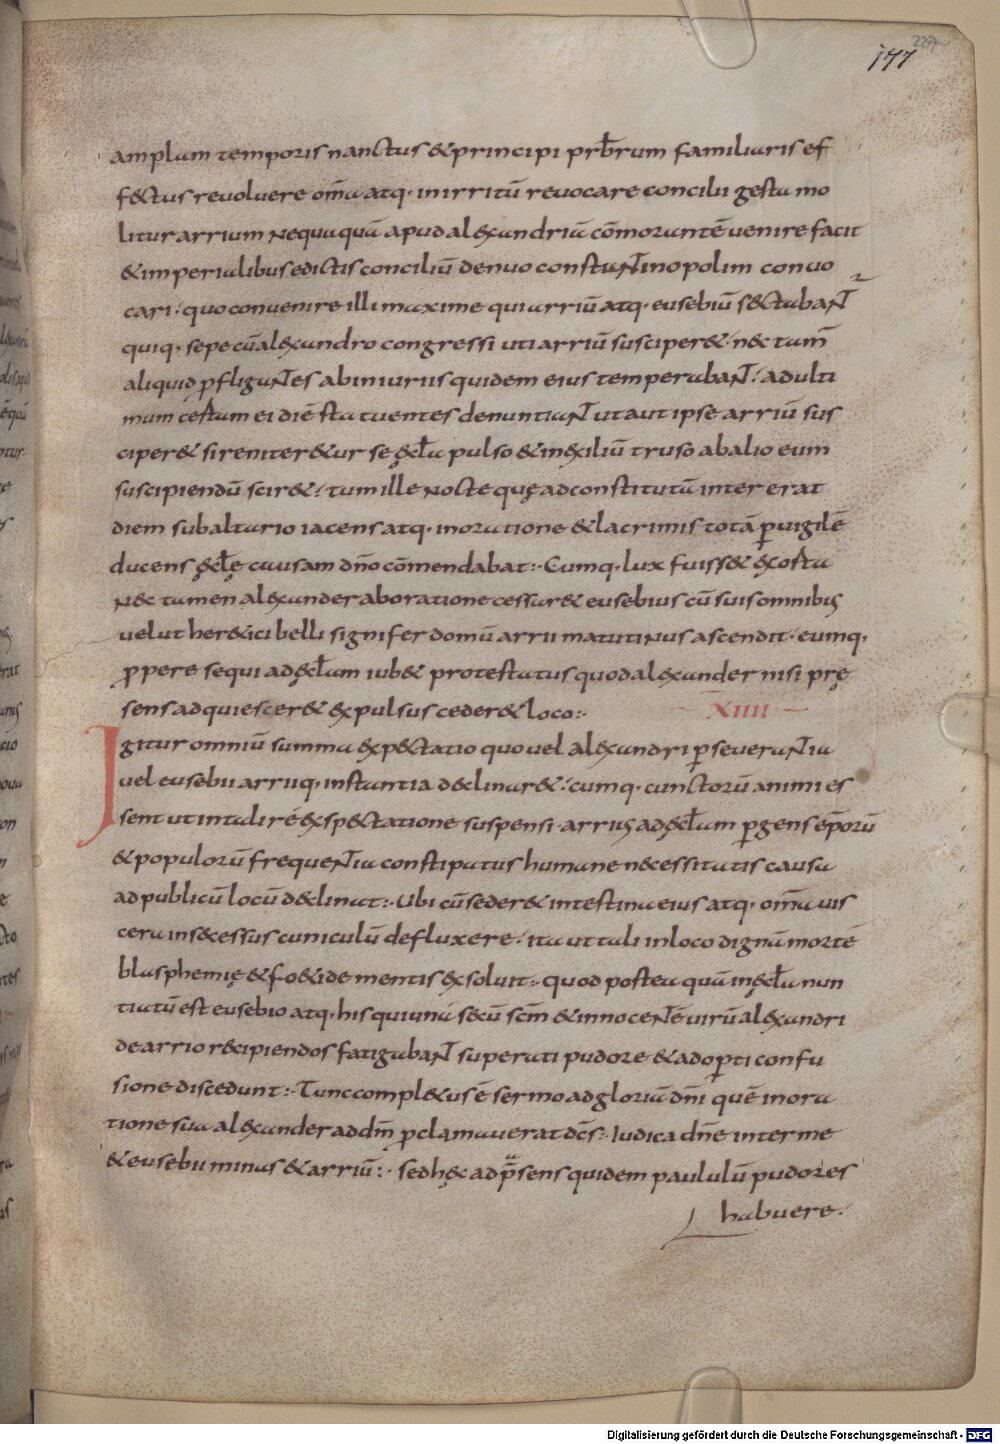 227
177
amplam temporis nanctus & principi prb̄rum familiaris ef
f&ctus revoluere om̄a atq· in irritū revocare concilii gesta mo
litur arrium Nequaquā apud al&xandriā cōmorantē uenire facit
& imperialibus edictis conciliū denuo constaNtinopolim conuo
cari· quo conuenire illi maxime qui arriū atq· eusebiū s&ctabaNt̄
quiq· sepe cū al&xandro congressi uti arriū susciper& n&c tam̄
aliquid ꝓfligaNtes ab iniuriis quidem eius temperabaNt̄· ad ulti
mum certam ei diē statuentes denuntiaNt̄ ut aut ipse arriū sus
ciper& si reniter&ur se ę̨ccl̄a pulso & in &xiliū truso ab alio eum
suscipiendū scir&· tum ille Nocte quę ad constitutā inter erat
diem sub altario iacens atq· in oratione & lacrimis totā ꝑuigilē
ducens ęccl̄ę causam dn̄o cōmendabat:· Cumq· lux fuiss& &xorta
N&c tamen al&xander ab oratione cessar& eusebius cū suis omnibus
uelut her&ici belli signifer domū arrii matutiNus ascendit· eumq·
ꝓpere sequi ad ęccl̄am iub& protestatus quod al&xander nisi prę
sens adquiescer& &xpulsus ceder& loco:·
XIIII
Igitur omniū summa &xp&ctatio quo uel al&xandri ꝑseueraNtia
uel eusebii arriiq· instantia d&clinar&· cumq· cunctorū animi es
sent ut in tali rē &xsp&ctatione suspensi· arrius ad ęccl̄am ꝑgens ep̄orū
& populorū frequeNtia constipatus humane n&cessitatis causa
ad publicū locū d&clinat:· Ubi cū seder& intestina eius atq· om̄a uis
cera in s&cessus cuniculū defluxere· ita ut tali in loco dignā mortē
blasphemię & fo&ide mentis &xsoluit:· quod postea quā in ęccl̄a nun
tiatū est eusebio atq· his qui unā s&cū scm̄ & innoceNtē uirū al&xandri
de arrio r&cipiendos fatigabaNt̄ superati pudore & adoꝑti confu
sione discedunt:· Tunc compl&us ē sermo ad gloriā dn̄i quē in ora
tione sua al&xander ad dm̄ ꝓclamauerat dc̄s:· Iudica dn̄e inter me
& eusebii minas & arriū:· sed h&c ad p̄sens quidem paululū pudores
habuere·
Digitalisierung gefördert durch die Deutsche Forschungsgemeinschaft - DFG